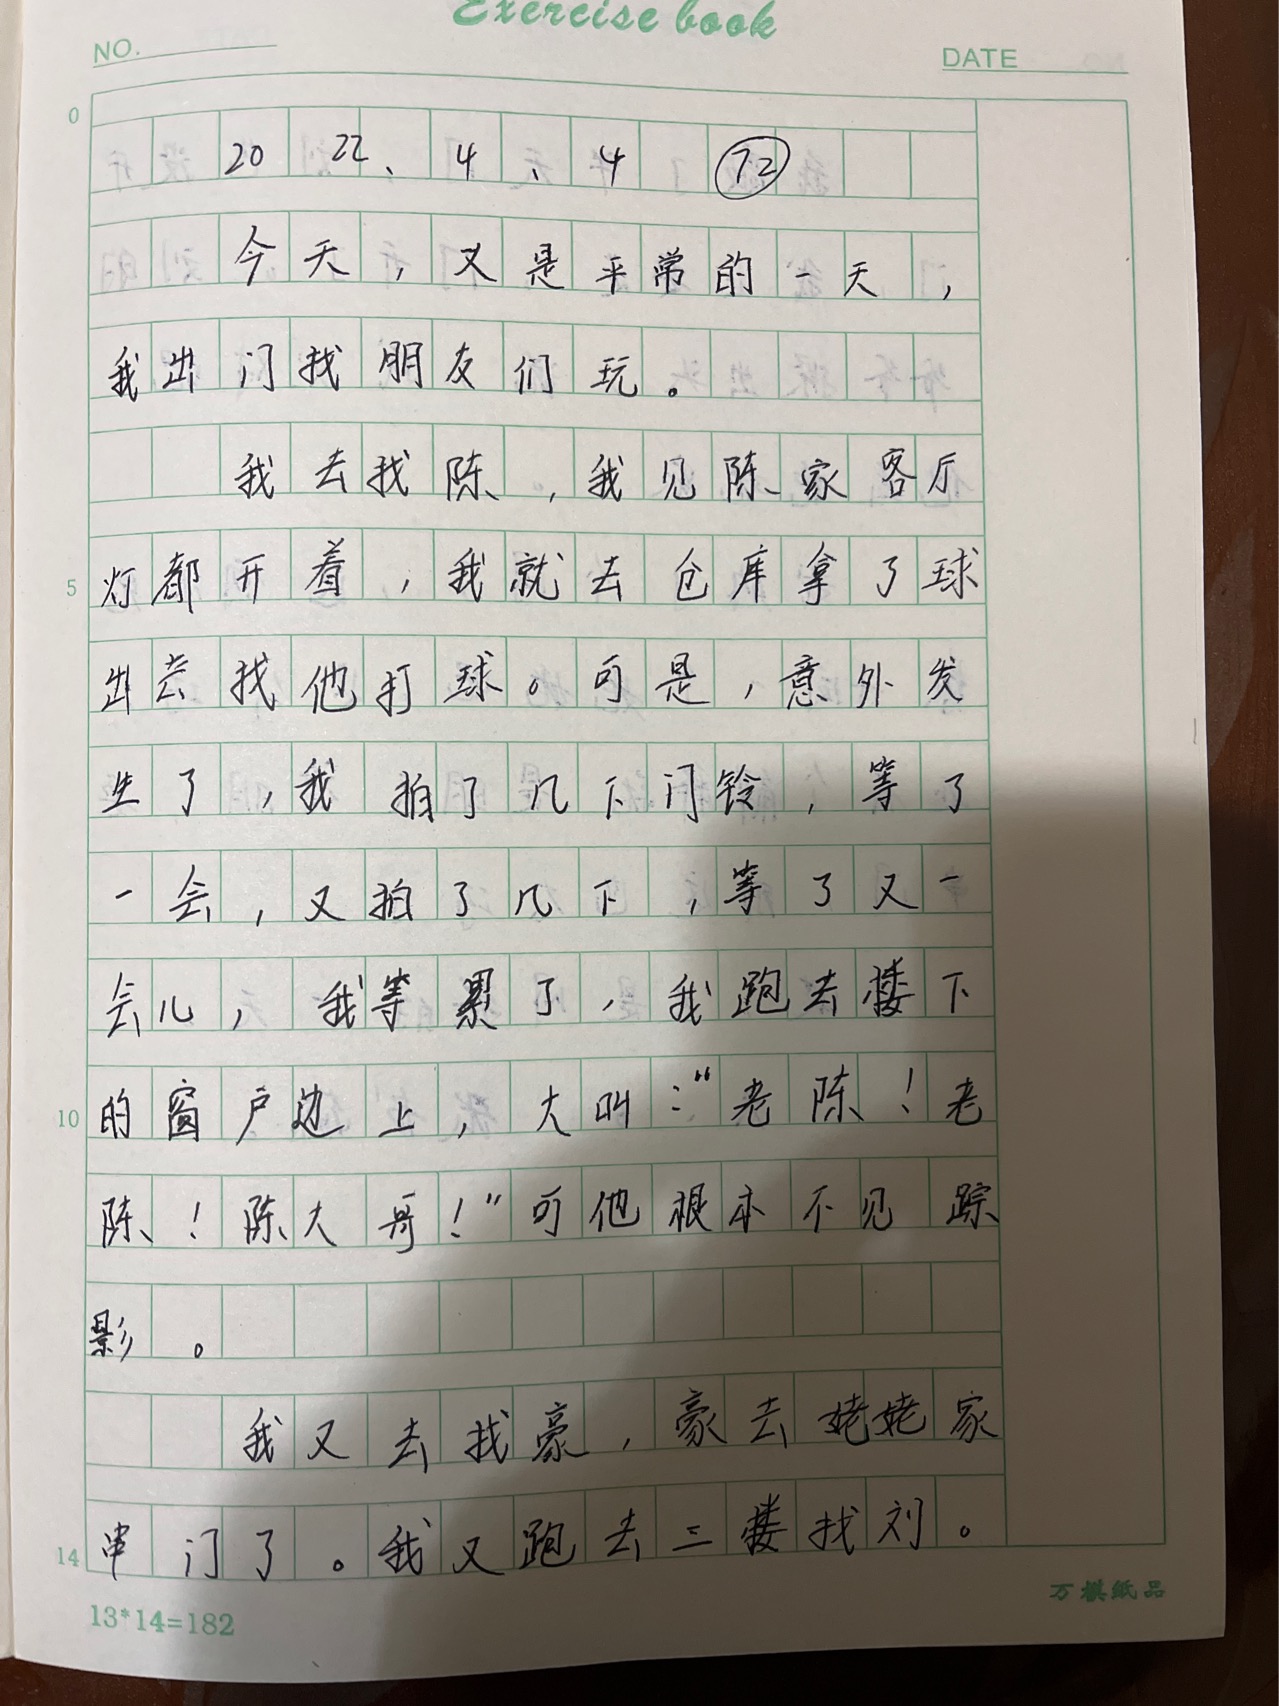 Exercise book
NO.
DATE
0
2022、4、4 72
今天，又是平常的一天，
我出门找朋友们玩。
我去找陈，我见陈家客厅
5 灯都开着，我就去仓库拿了球
出去找他打球。可是，意外发
生了，我拍了几下门铃，等了
一会，又拍了几下，等了又一
会儿，我等累了，我跑去楼下
10 的窗户边上，大叫：“老陈！老
陈！陈大哥！”可他根本不见踪
影。
我又去找豪，豪去姥姥家
14 串门了。我又跑去三楼找刘。
13*14=182
万棋纸品